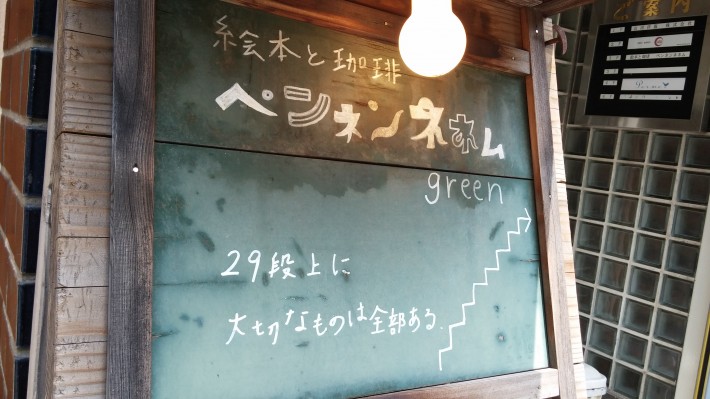 絵本と珈琲
ペンネンネネム
green
29段上に
大切なものは全部ある.
ご案内